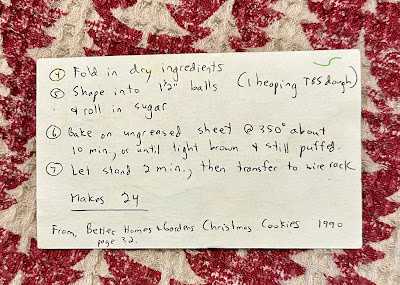 ④ Fold in dry ingredients
⑤ Shape into 1½" balls (1 heaping TBS dough)
& roll in sugar
⑥ Bake on ungreased sheet @ 350° about
10 min., or until light brown & still puffed.
⑦ Let stand 2 min., then transfer to wire rack
Makes 24
From, Better Homes & Gardens Christmas Cookies 1990
page 32.